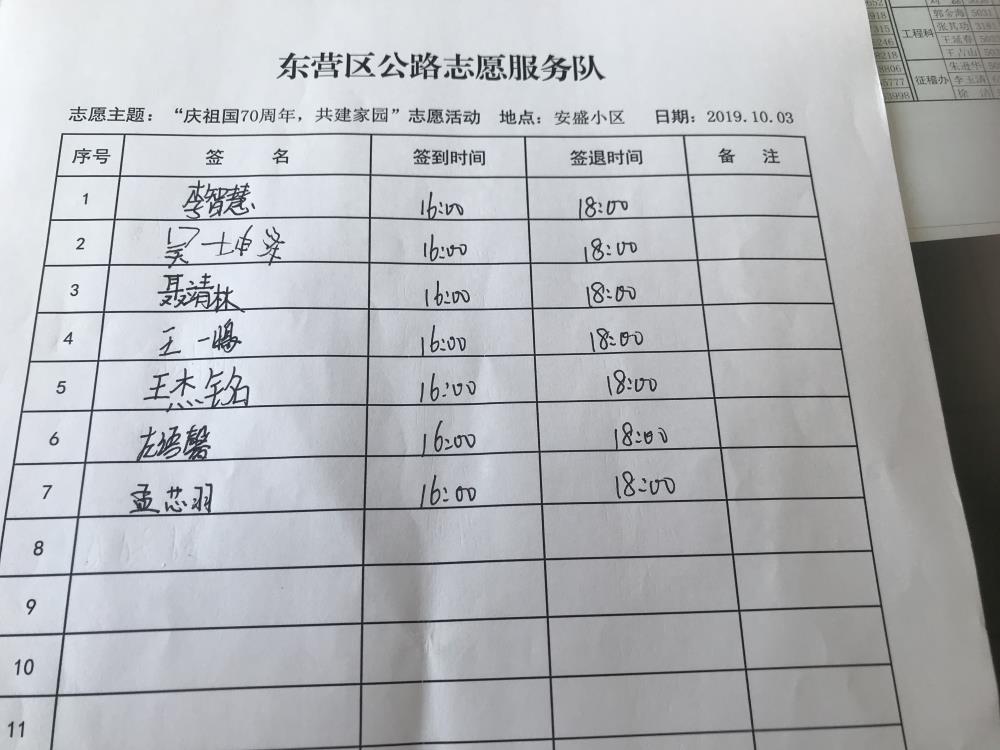 东营区公路志愿服务队
志愿主题：“庆祖国70周年，共建家园”志愿活动 地点：安盛小区 日期：2019.10.03
序号 签 名 签到时间 签退时间 备 注
1 李智慧 16:00 18:00
2 吴 16:00 18:00
3 聂清林 16:00 18:00
4 王一鸣 16:00 18:00
5 王杰铭 16:00 18:00
6 左语馨 16:00 18:00
7 孟芯羽 16:00 18:00
8
9
10
11
工程科
郭金海 5031
张其功 3181
王延春
王吉山
征稽办
李玉清
918
315
246
8218
8806
5777
3998